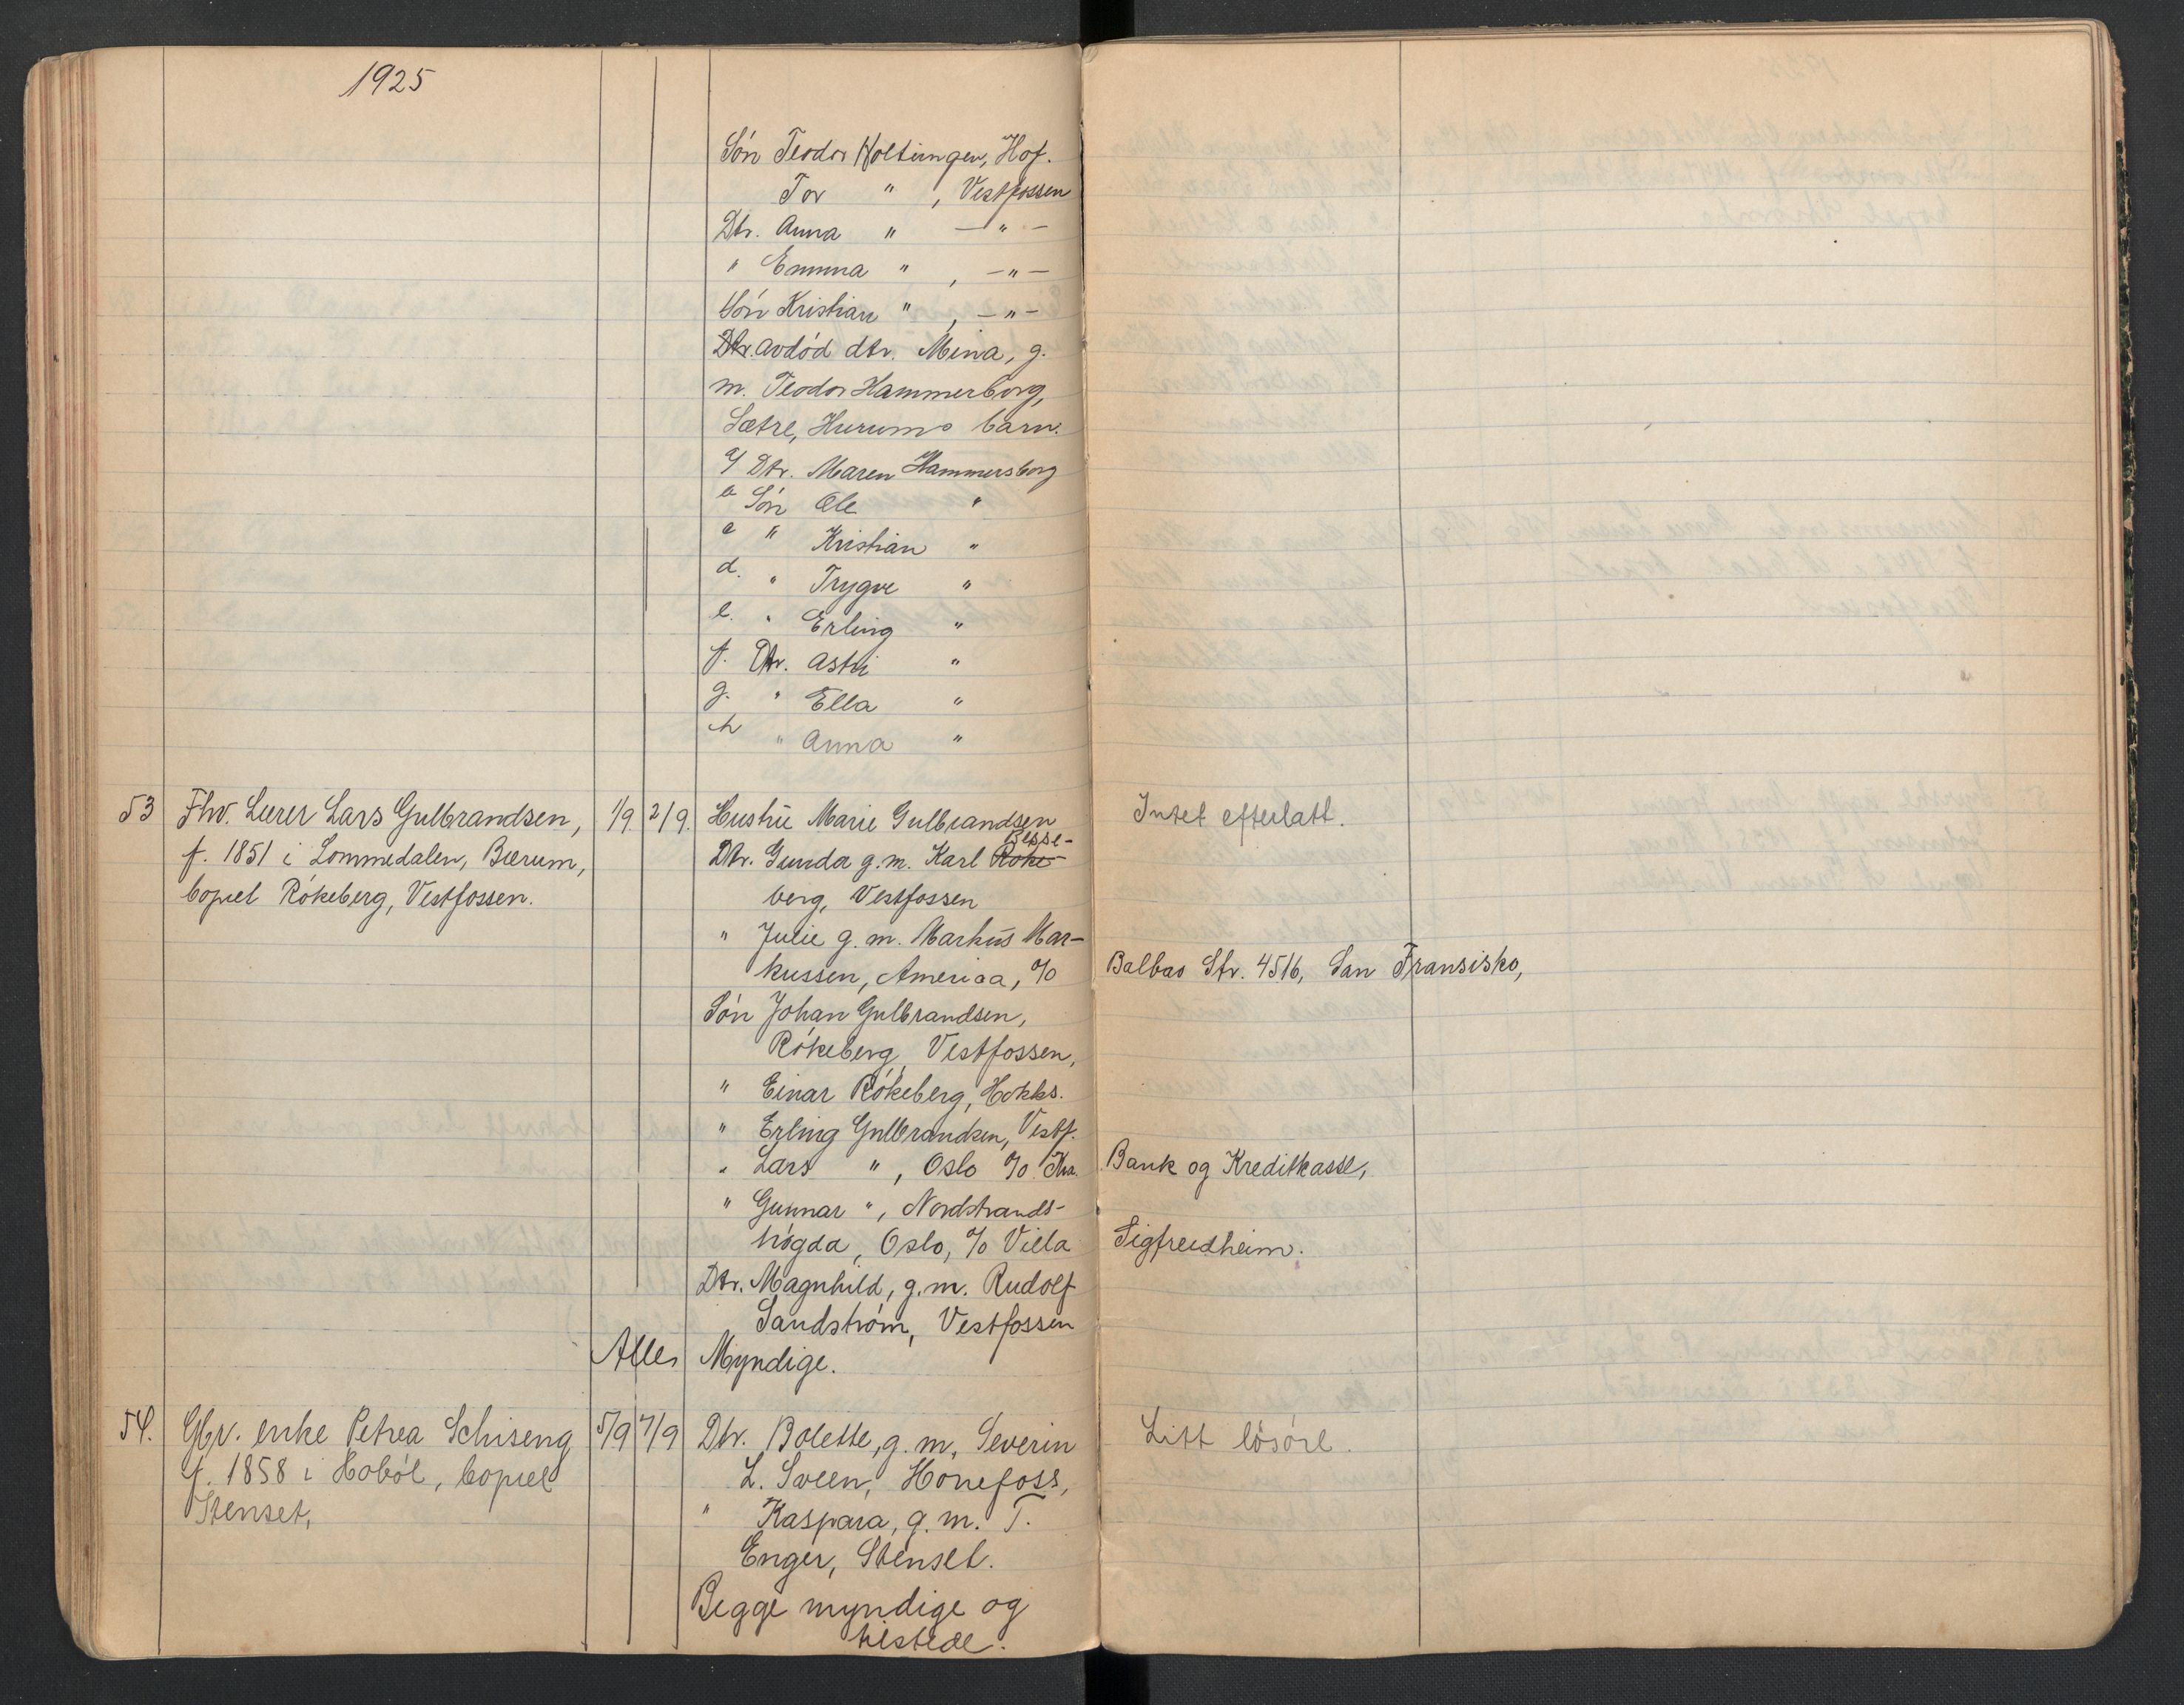 1925
Søn Teodor Holtungen, Hof.
Tor " , Vestfossen
Dtr. Anna " — " —
" Emma " , — " —
Søn Kristian " , — " —
Dtr. avdød dtr. Mina, g.
m. Teodor Hammerborg,
Sætre, Hurums barn.
a/ Dtr. Maren Hammersborg
b Søn Ole "
c " Kristian "
d. " Trygve "
e. " Erling "
f. Dtr. Astri "
g. " Ella "
h " Anna "
53 Fhv. Lærer Lars Gulbrandsen, 1/9. 2/9. Hustru Marie Gulbrandsen Intet efterlatt.
f. 1851 i Lommedalen, Bærum, Dtr. Gunda g.m. Karl Røke- Besse-
bopæl Røkeberg, Vestfossen. berg, Vestfossen
" Julie g.m. Markus Mar-
kussen, America, c/o Balbao Str. 4516, San Fransisko,
Søn Johan Gulbrandsen,
Røkeberg, Vestfossen,
" Einar Røkeberg, Hokks.
" Erling Gulbrandsen, Vestf.
" Lars " , Oslo c/o Kra. Bank og Kreditkasse,
" Gunnar " , Nordstrands-
høgda, Oslo, c/o Villa Sigfredheim.
Dtr. Magnhild, g.m. Rudolf
Sandstrøm, Vestfossen
Alles Myndige.
54. Gbr. enke Petrea Schiseng 5/9 7/9 Dtr. Bolette, g.m. Severin Litt løsøre.
f. 1858 i Hobøl, bopæl L. Sveen, Hønefoss,
Stenset, " Kaspara, g.m. T.
Enger, Stenset.
Begge myndige og
tilstede.